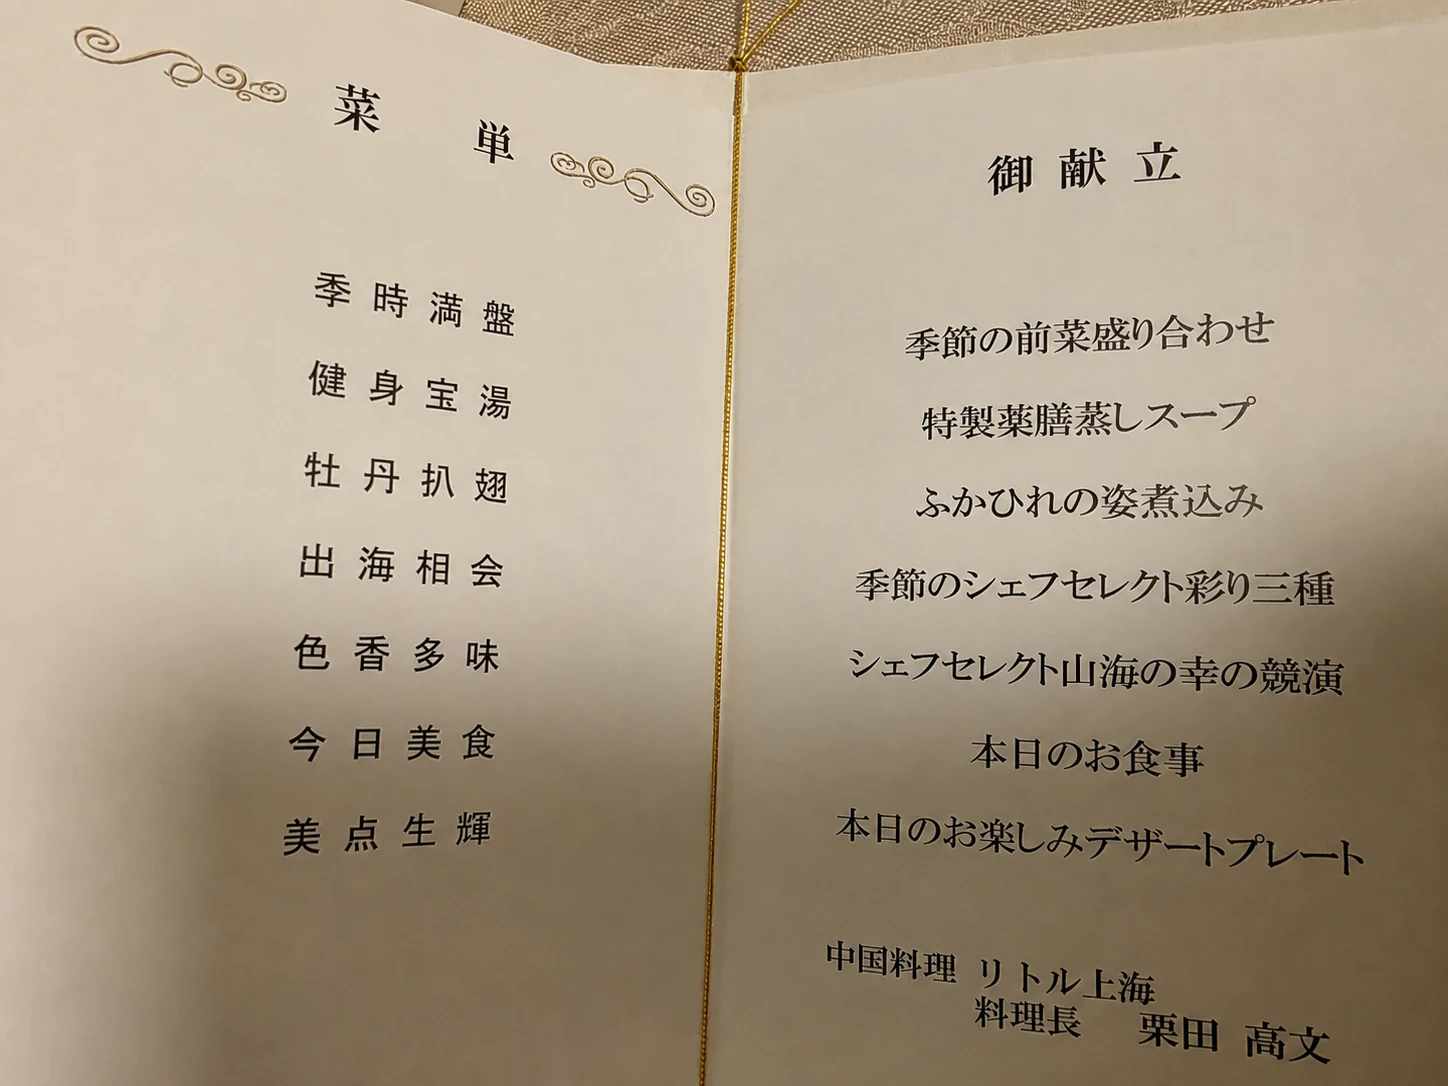 菜単
季時満盤
健身宝湯
牡丹扒翅
出海相会
色香多味
今日美食
美点生輝
御献立
季節の前菜盛り合わせ
特製薬膳蒸しスープ
ふかひれの姿煮込み
季節のシェフセレクト彩り三種
シェフセレクト山海の幸の競演
本日のお食事
本日のお楽しみデザートプレート
中国料理 リトル上海
料理長 栗田 高文